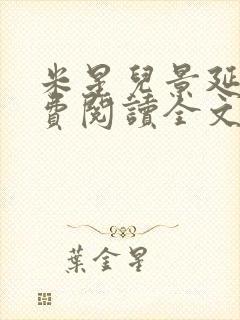 米星兒景延
費閱讀全文
葉金星